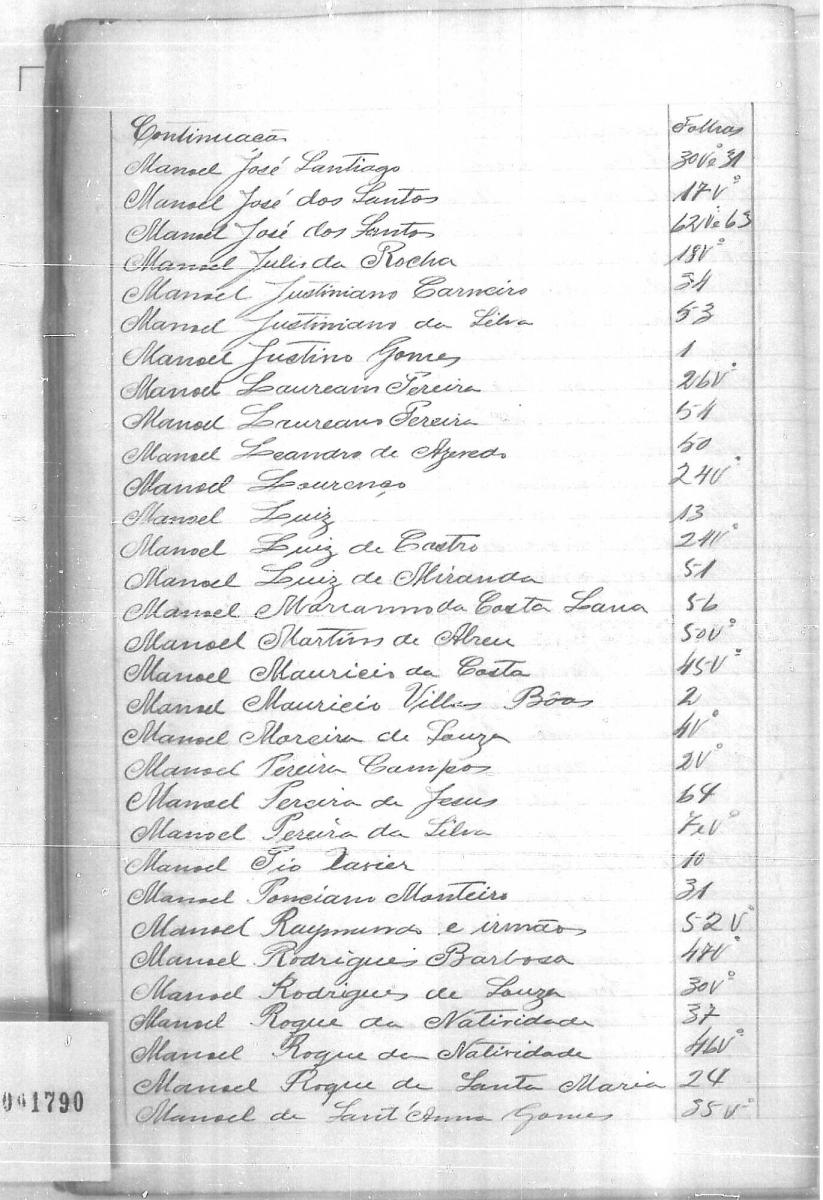 Continuação Folhas
Manoel José Santiago 30vº e 31
Manoel José dos Santos 17vº
Manoel José dos Santos 62vº e 63
Manoel Julio da Rocha 18vº
Manoel Justiniano Carneiro 34
Manoel Justiniano da Silva 53
Manoel Justino Gomes 1
Manoel Laureano Pereira 26vº
Manoel Laureano Pereira 54
Manoel Leandro de Azevedo 50
Manoel Lourenço 24vº
Manoel Luiz 13
Manoel Luiz de Castro 24vº
Manoel Luiz de Miranda 51
Manoel Marianno da Costa Lana 56
Manoel Martins de Abreu 50vº
Manoel Mauricio da Costa 45vº
Manoel Mauricio Villas Bôas 2
Manoel Moreira de Souza 4vº
Manoel Pereira Campos 2vº
Manoel Pereira de Jesus 64
Manoel Pereira da Silva 7evº
Manoel Pio Xavier 10
Manoel Ponciano Monteiro 31
Manoel Raymundo e irmãos 52vº
Manoel Rodrigues Barbosa 47vº
Manoel Rodrigues de Souza 30vº
Manoel Roque da Natividade 37
Manoel Roque da Natividade 46vº
Manoel Roque de Santa Maria 24
Manoel de Sant'Anna Gomes 35vº
001790